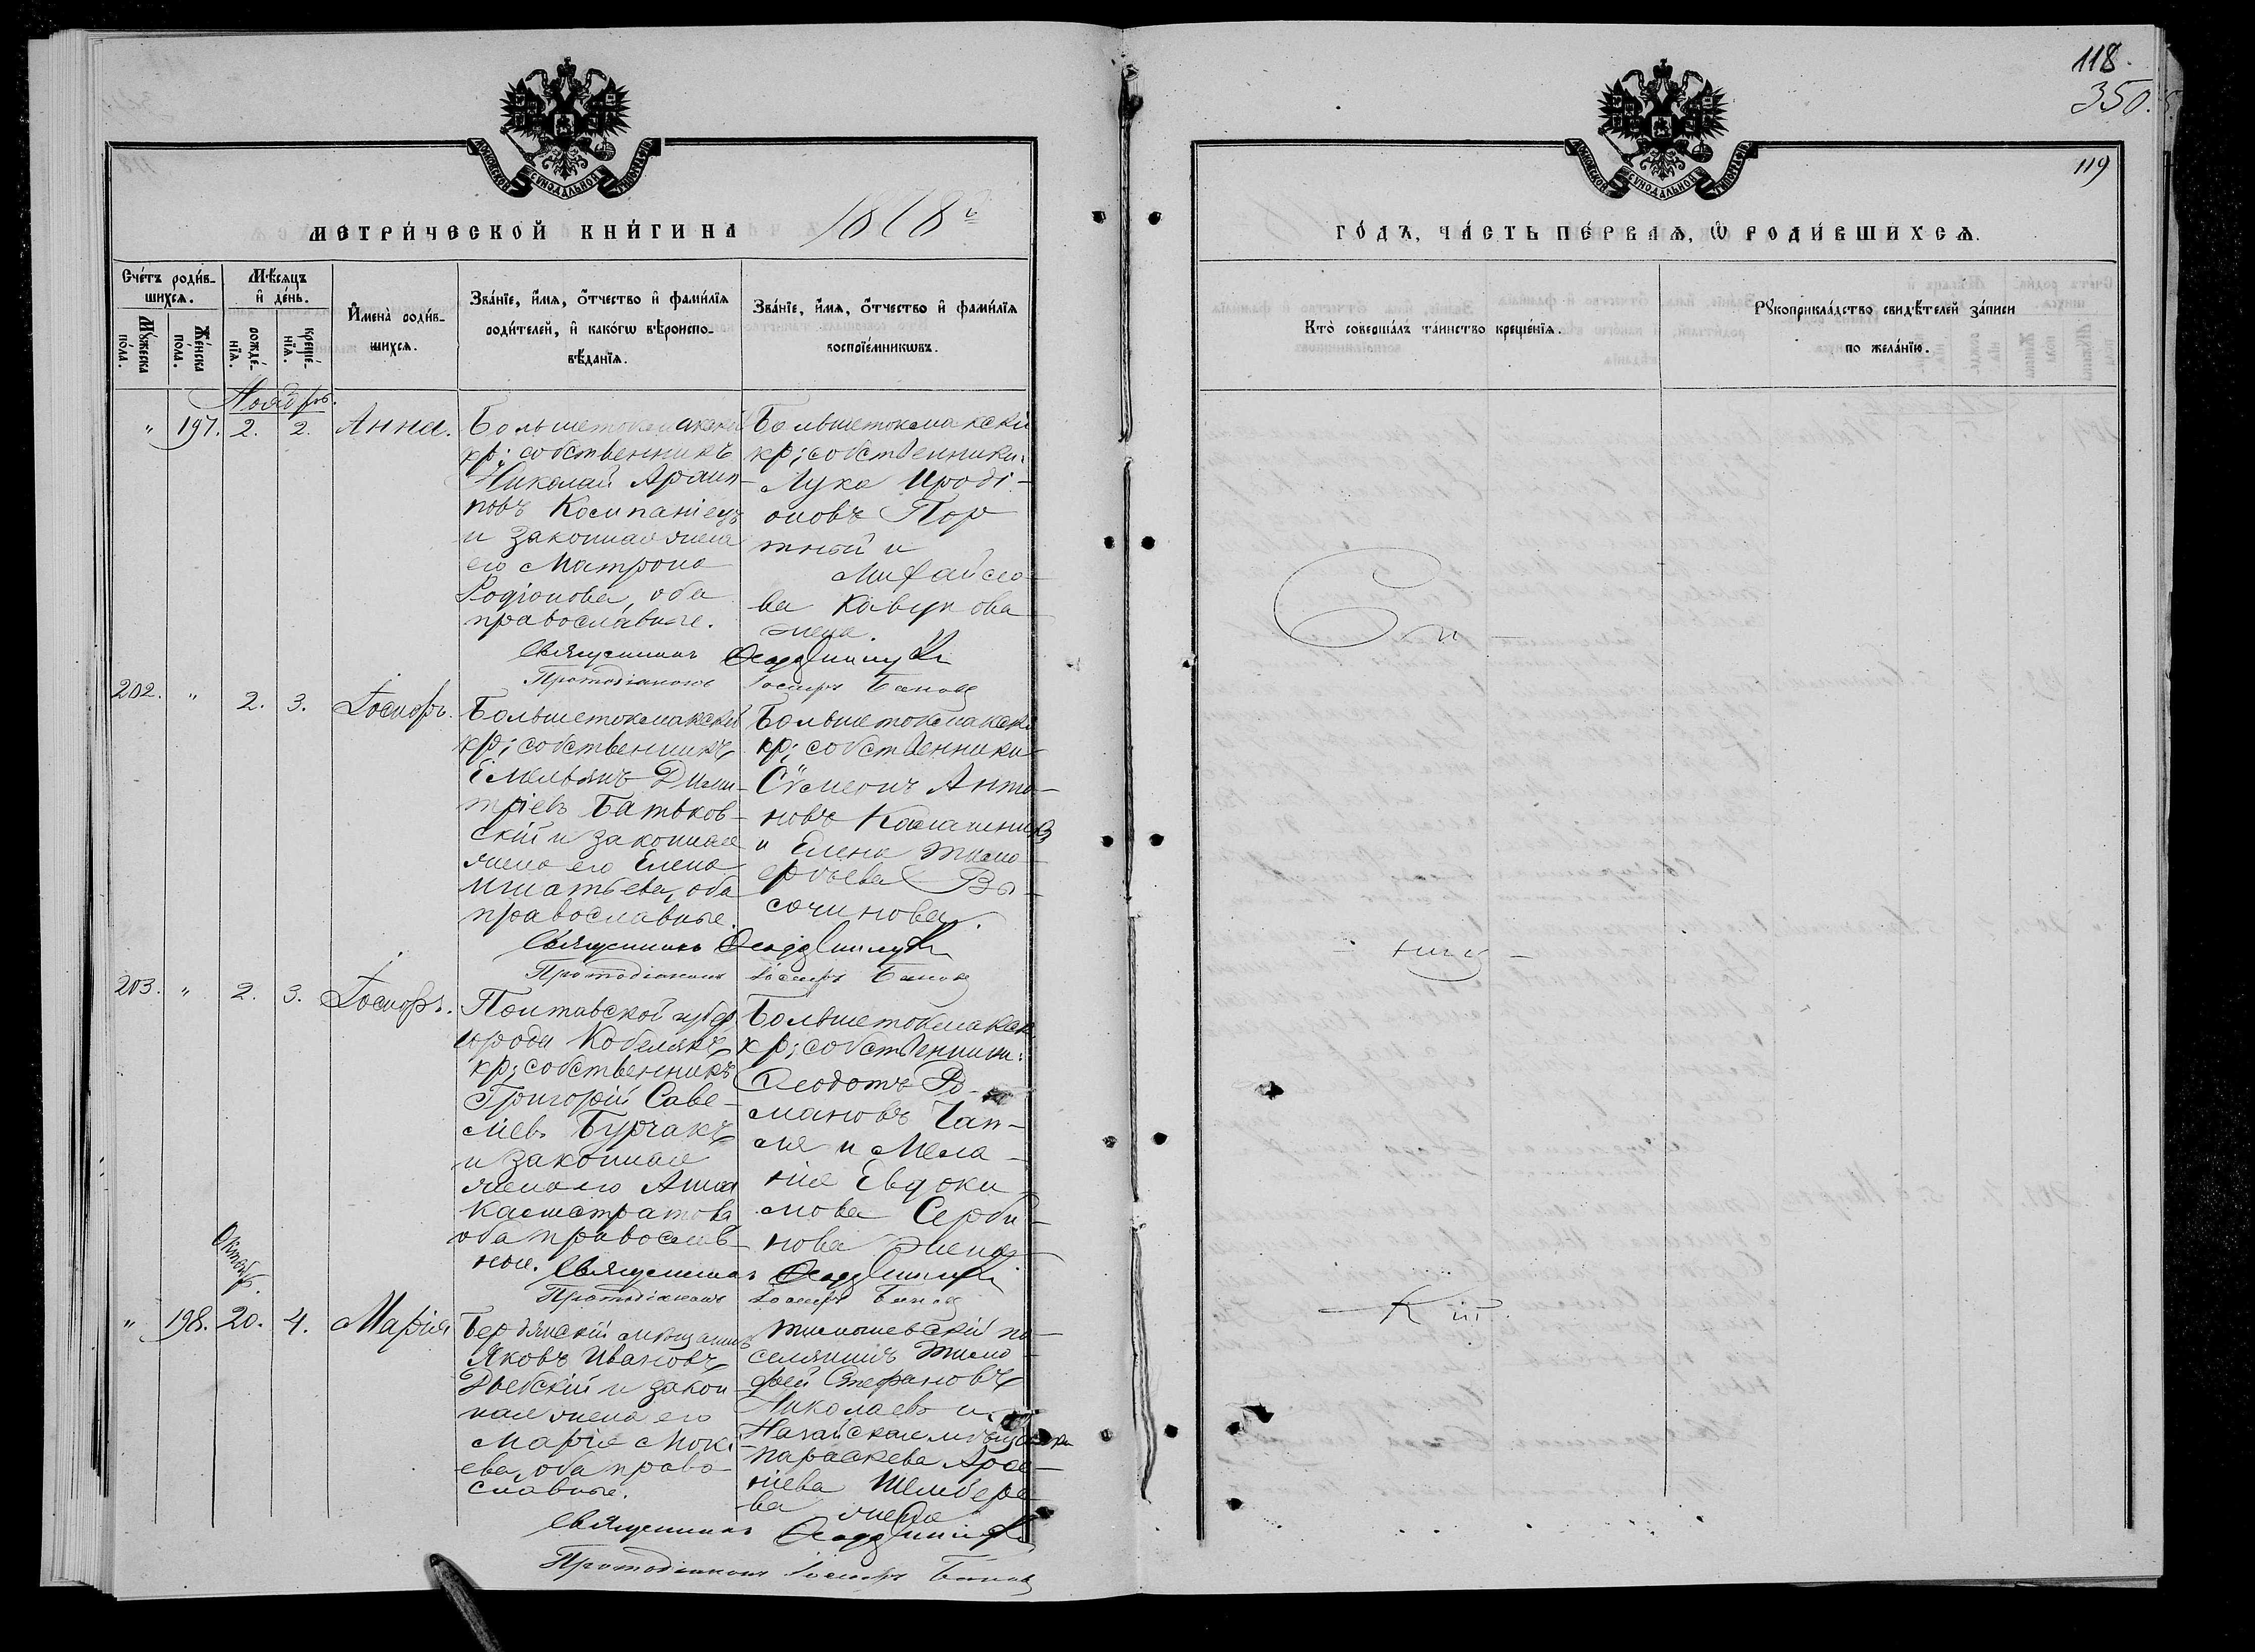 118.
350.
119
МОСКОВСКОЙ СУНОДАЛЬНОЙ ТИПОГРАФІИ
МОСКОВСКОЙ СУНОДАЛЬНОЙ ТИПОГРАФІИ
МЕТРИ́ЧЕСКОЙ КНИ́ГИ НА
ГО́ДЪ, ЧА́СТЬ ПЕ́РВАѦ, Ѡ РОДИ́ВШИХСѦ.
Сче́тъ роди́в-
шихсѧ.
Мꙋ́жеска
по́ла.
Же́нска
по́ла.
Мѣ́сѧцъ
и҆ де́нь.
рожде́-
нїѧ.
креще́-
нїѧ.
И҆мена̀ роди́в-
шихсѧ.
Зва́нїе, и҆́мѧ, ѻ҆́тчество и҆ фами́лїѧ
роди́телей, и҆ како́гѡ вѣроиспо-
вѣ́данїѧ.
Зва́нїе, и҆́мѧ, ѻ҆́тчество и҆ фами́лїѧ
воспрїе́мникѡвъ.
Кто̀ соверша́лъ та́инство креще́нїѧ.
Рꙋкоприкла́дство свидѣ́телей за́писи
по жела́нїю.
Ноябрь.
" 197. 2. 2. Анна.
Большетокмакскій
кр; собственникъ
Николай Архип-
повъ Компаніецъ
и законная жена
его Матрона
Родіонова, оба
православные.
Большетокмакскій
кр; собственники:
Лука Иродi-
оновъ Пор
тной и
Михайло-
ва Кавунова
жена.
Священникъ
Протодіаконъ Іосифъ Банов
202. " 2. 3. Іосифъ.
Большетокмакскій
кр; собственникъ
Емельянъ Дими-
тріевъ Батьков-
скій и законная
жена его Елена
Игнатьева, оба
православные.
Большетокмакскі
кр; собственники
Сѵмеонъ Анто-
новъ Калашник
и Елена Тимо-
феева Вы-
сочинова.
Священникъ
Протодіаконъ Іосифъ Банов
203. " 2. 3. Іосифъ.
Полтавской губер.
города Кобелякъ
кр; собственникъ
Григорій Саве-
ліев. Бурчакъ
и законная
жена его Анна
Калистратова
оба православ-
ные.
Большетокмакск
кр; собственники:
Ѳеодотъ Ро-
мановъ Чап-
ля и Мела-
нія Евдоки
мова Серби-
нова жена
Священникъ
Протодіаконъ Іосифъ Банов
Октябр.
" 198. 20. 4. Марія
Бердянскій мѣщанинъ
Яковъ Ивановъ
и закон-
ная жена его
Марія Моки
ева, оба право-
славные.
Тимошевскій по-
селянинъ Тимо-
фей Стефановъ
Николаевъ и
Ногайская мѣщанка
Параскева Арсе-
ніева
ва жена
Священникъ
Протодіаконъ Іосифъ Банов